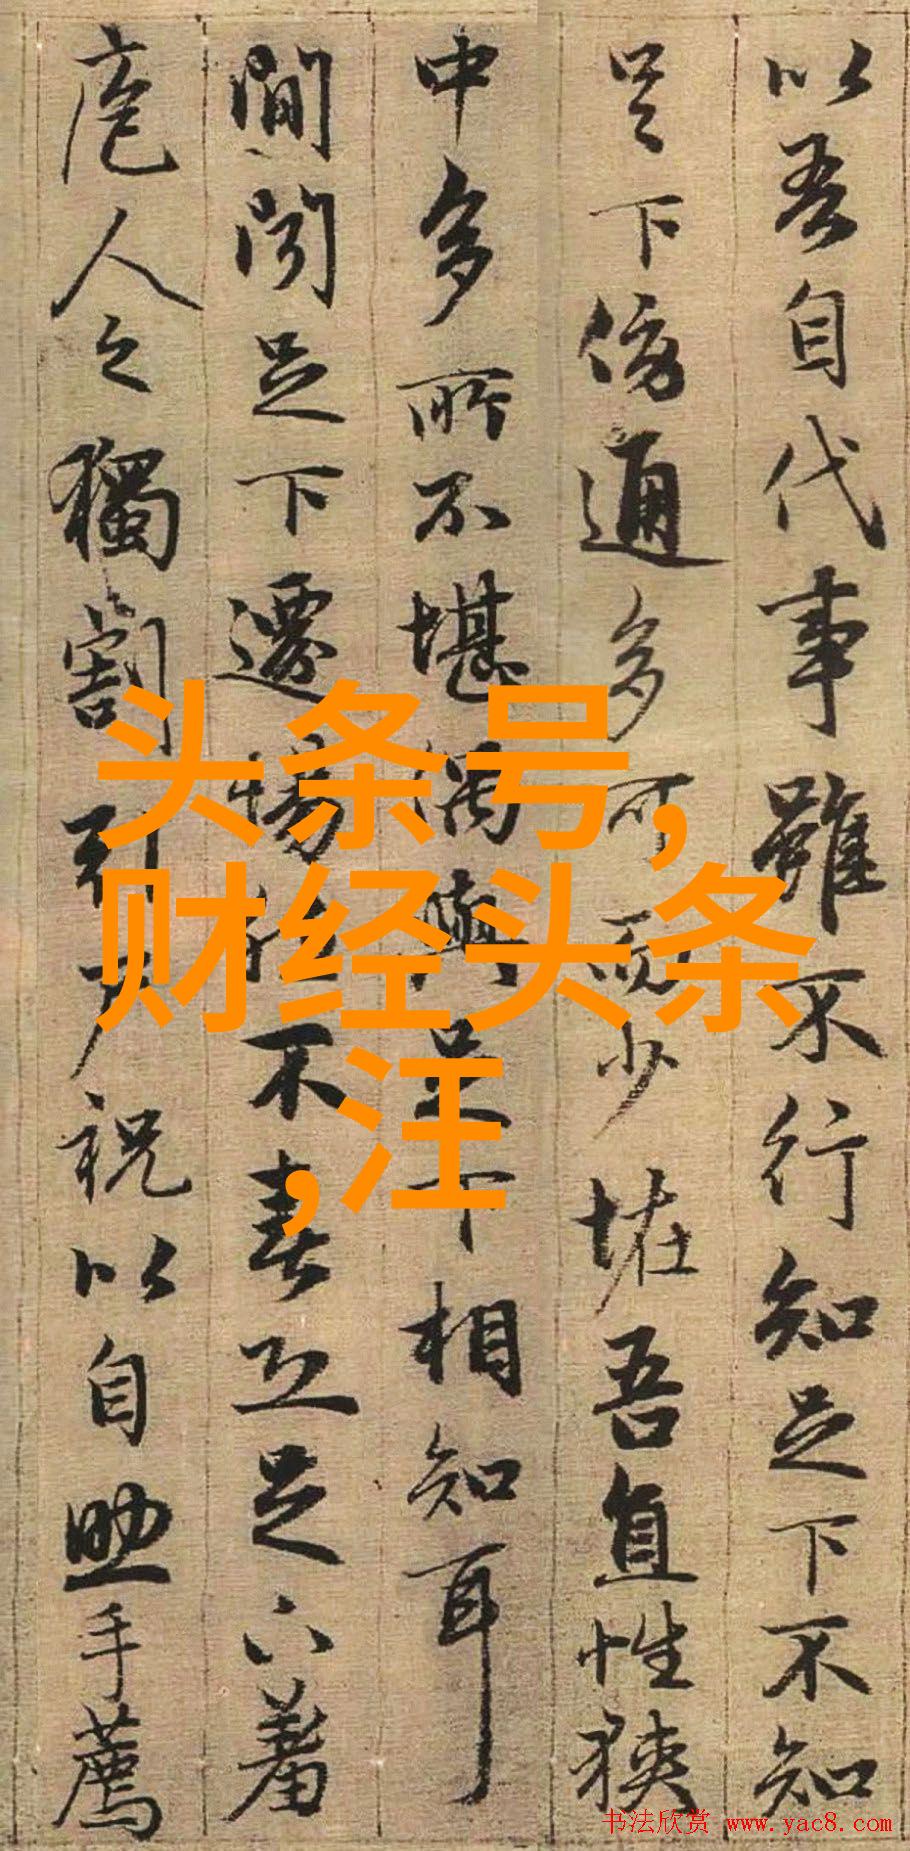 以吾自代事雖不行知足下不知
足下傍通多可而少恠吾直性狹
中多所不堪偶與足下相知耳
間聞足下遷惕然不喜恐足下羞
庖人之獨割引尸祝以自助手薦
头条号,
财经头条
,汪
书法欣赏 www.yac8.com